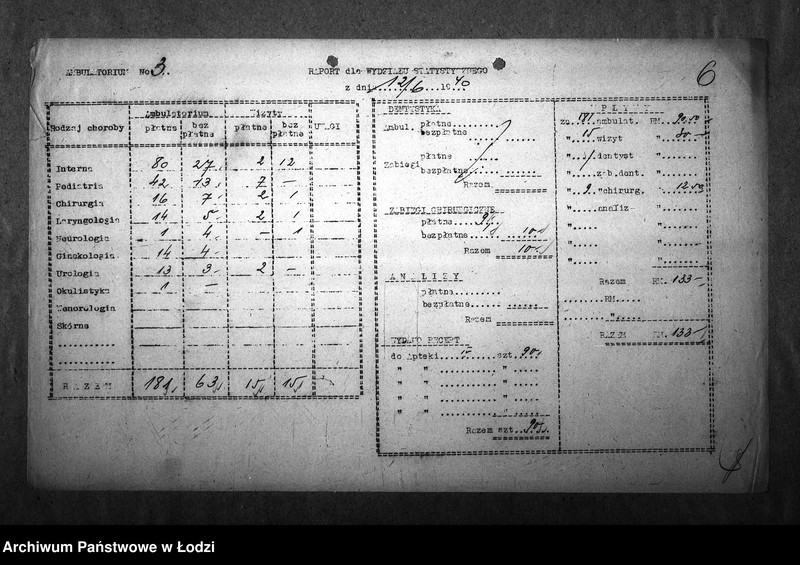 AMBULATORIUM No 3.
RAPORT dla WYDZIAŁU STATYSTYCZNEGO
z dnia 12/6 1940
6
Rodzaj choroby
Ambulatorium
Wizyty
płatne
bez płatne
płatne
bez płatne
ULGI
Interna 80 27 2 12
Pediatria 42 13 7 –
Chirurgia 16 7 2 1
Laryngologia 14 5 2 1
Neurologia 1 4 – 1
Ginekologia 14 4
Urologia 13 3 2 –
Okulistyka 1 –
Wenerologia
Skórne
RAZEM 181 63 15 15
DENTYSTYKA
Ambul. płatne
bezpłatne
Zabiegi płatne
bezpłatne
Razem
ZABIEGI CHIRURGICZNE
płatne
bezpłatne
Razem
ANALIZY
płatne
bezpłatne
Razem
WYDANO RECEPT
do Apteki szt.
Razem szt.
WPŁYWY
za 181 ambulat. RM.
" 15 wizyt " 30 –
" dentyst "
" zab.dent. "
" 2 "chirurg. " 12.50
" analiz "
Razem RM. 133 –
RM.
"
RAZEM RM. 133 –
Archiwum Państwowe w Łodzi